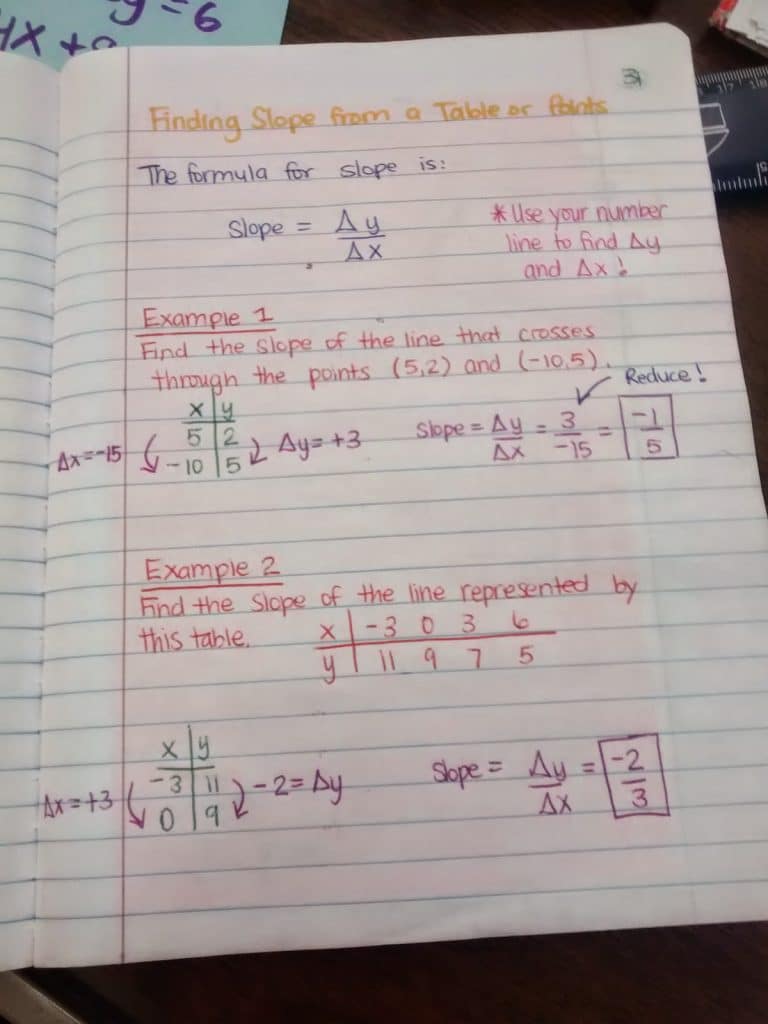 y=6
4x +
31
Finding Slope from a Table or Points
The formula for slope is:
Slope = Δy/Δx
*Use your number
line to find Δy
and Δx!
Example 1
Find the slope of the line that crosses
through the points (5,2) and (-10,5).
Reduce!
x | y
5 | 2
-10 | 5
Δx=-15
Δy=+3
Slope = Δy/Δx = 3/-15 = -1/5
Example 2
Find the slope of the line represented by
this table.
x | -3 0 3 6
y | 11 9 7 5
x | y
-3 | 11
0 | 9
Δx=+3
-2=Δy
Slope = Δy/Δx = -2/3
17 18
15